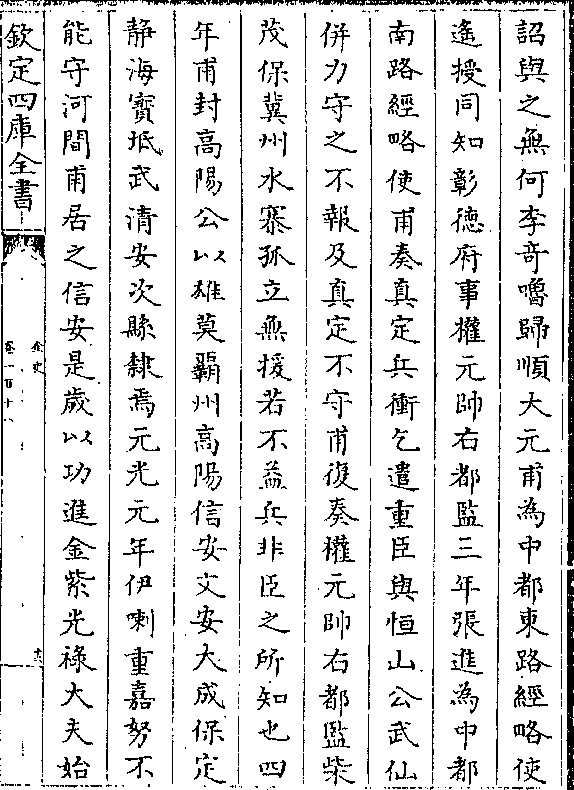 詔與之無何李奇嚕歸順大元甫為中都東路經略使
遙授同知彰德府事權元帥右都監三年張進為中都
南路經略使甫奏真定兵衝乞遣重臣與恒山公武仙
併力守之不報及真定不守甫復奏權元帥右都監柴
茂保冀州水寨孤立無援若不益兵非臣之所知也四
年甫封高陽公以雄莫霸州高陽信安文安大成保定
静海寶坻武清安次縣隸焉元光元年伊喇重嘉努不
能守河間甫居之信安是歲以功進金紫光祿大夫始
欽定四庫全書
金史
卷一百十八